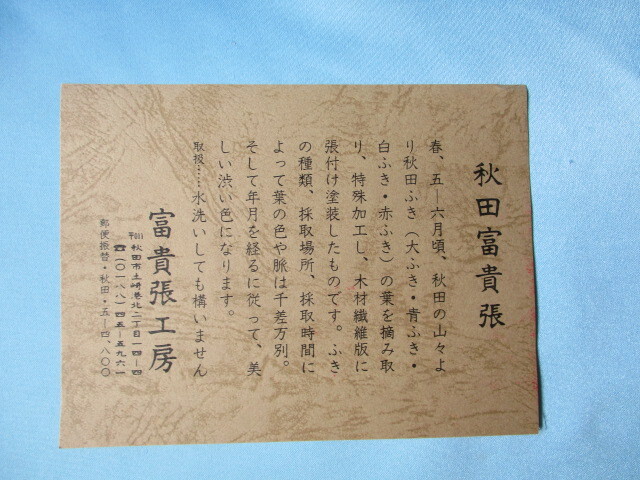 秋田富貴張
春、五―六月頃、秋田の山々よ
り秋田ふき（大ふき・青ふき・
白ふき・赤ふき）の葉を摘み取
り、特殊加工し、木材繊維版に
張付け塗装したものです。ふき
の種類、採取場所、採取時間に
よって葉の色や脈は千差万別。
そして年月を経るに従って、美
しい渋い色になります。
取扱……水洗いしても構いません
富貴張工房
〒011 秋田市土崎港北二丁目一四―四
☎（〇一八八）四五―五九六一
郵便振替・秋田・五―四、八〇〇